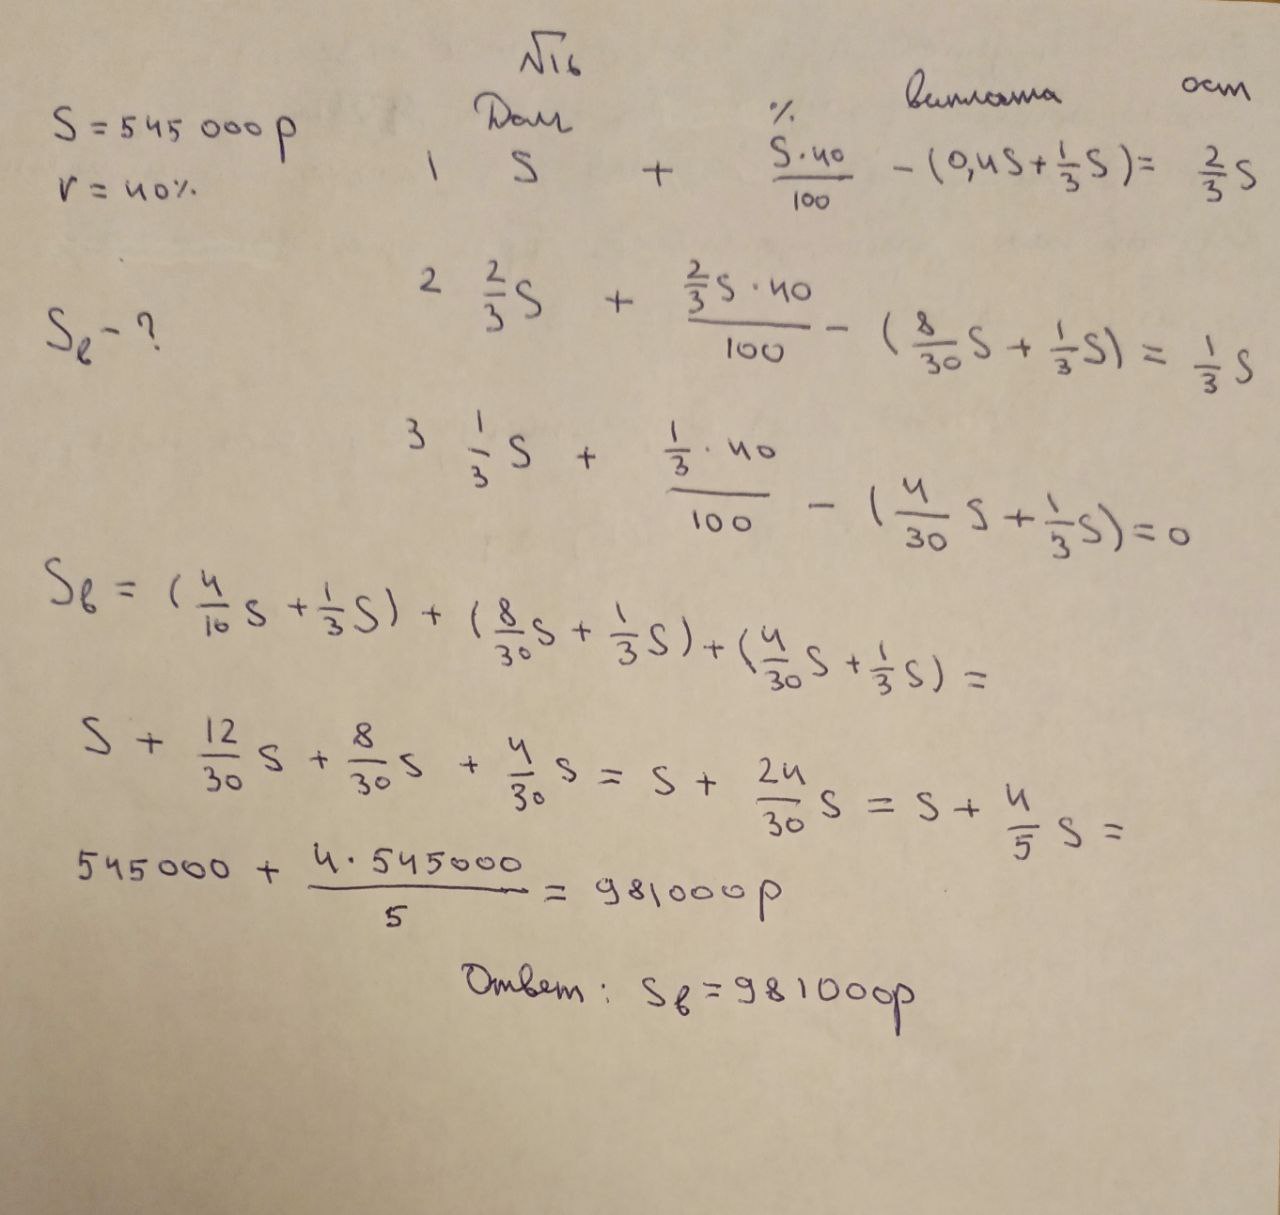 №16
Долг % выплата ост
S = 545 000 р
1 S + S·40/100 - (0,4S + 1/3 S) = 2/3 S
r = 40%
2 2/3 S + 2/3 S · 40/100 - (8/30 S + 1/3 S) = 1/3 S
Sв - ?
3 1/3 S + 1/3 · 40/100 - (4/30 S + 1/3 S) = 0
Sв = (4/10 S + 1/3 S) + (8/30 S + 1/3 S) + (4/30 S + 1/3 S) =
S + 12/30 S + 8/30 S + 4/30 S = S + 24/30 S = S + 4/5 S =
545000 + 4 · 545000/5 = 981000 р
Ответ: Sв = 981000р